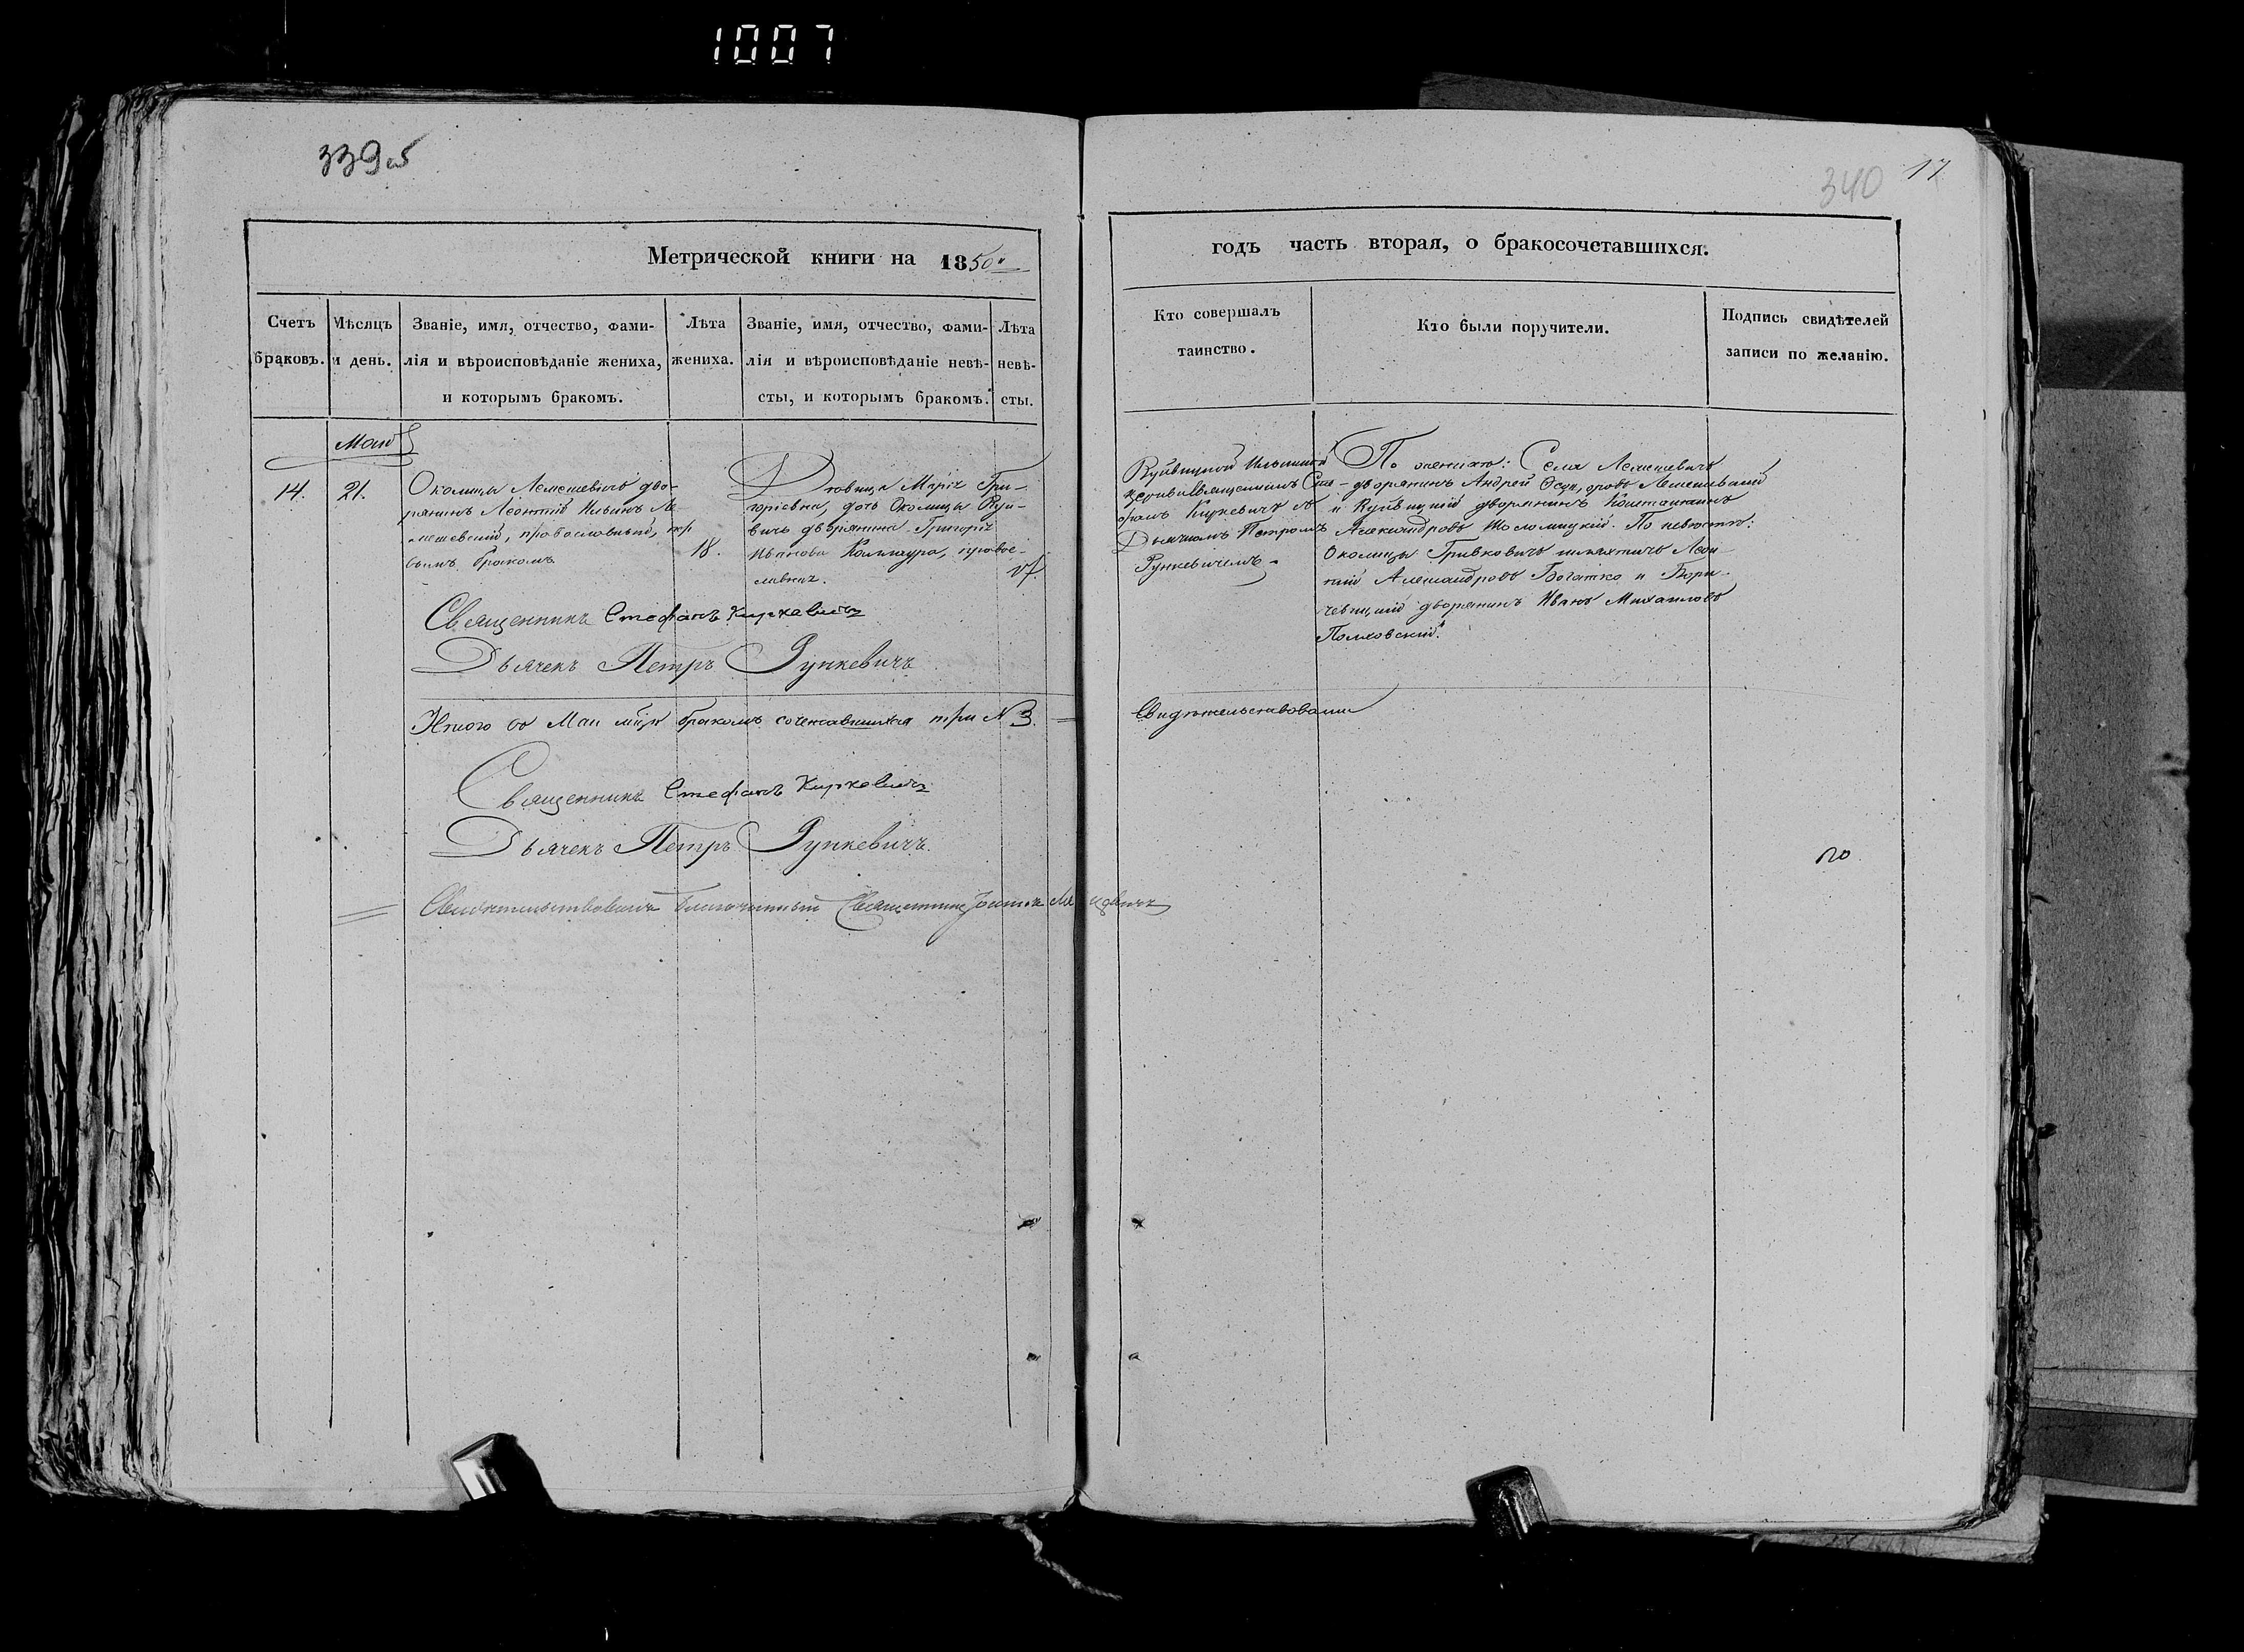 1007
339об
340
17
Метрической книги на 1850й
годъ часть вторая, о бракосочетавшихся.
Счетъ
браковъ.
Мѣсяцъ
и день.
Званіе, имя, отчество, фами-
лія и вѣроисповѣданіе жениха,
и которымъ бракомъ.
Лѣта
жениха.
Званіе, имя, отчество, фами-
лія и вѣроисповѣданіе невѣ-
сты, и которымъ бракомъ.
Лѣта
невѣ-
сты.
Кто совершалъ
таинство.
Кто были поручители.
Подпись свидѣтелей
записи по желанію.
Маія
14.
21.
Околицы Лемешевичъ дво-
рянинъ Леонтій Ильинъ Ле-
мешевскій, православный, пер-
вымъ бракомъ
18.
Дѣвица Марія Гри-
горіева, дочь Околицы
дворянина Григорія
Иванова Колпаура, правос-
лавная.
17.
Ильинской
церкви Священникъ Сте-
фанъ Киркевичъ съ
Дьячкомъ Петромъ
Рункевичемъ.
По женихѣ: Села Лемешевичъ
дворянинъ Андрей Лемешевскій
и дворянинъ Константинъ
Александровъ. По невѣстѣ:
Околицы Гривковичъ шляхтичъ Леон-
тій Александровъ Богатко и
дворянинъ Иванъ Михайловъ
Полховскій.
Священникъ Стефанъ Киркевичъ
Дьячекъ Петръ Рункевичъ
Итого въ Маи мцѣ бракомъ сочетавшихся три № 3.
Свидѣтельствовали
Священникъ Стефанъ Киркевичъ
Дьячекъ Петръ Рункевичъ.
Свидѣтельствовалъ Благочинный Священникъ